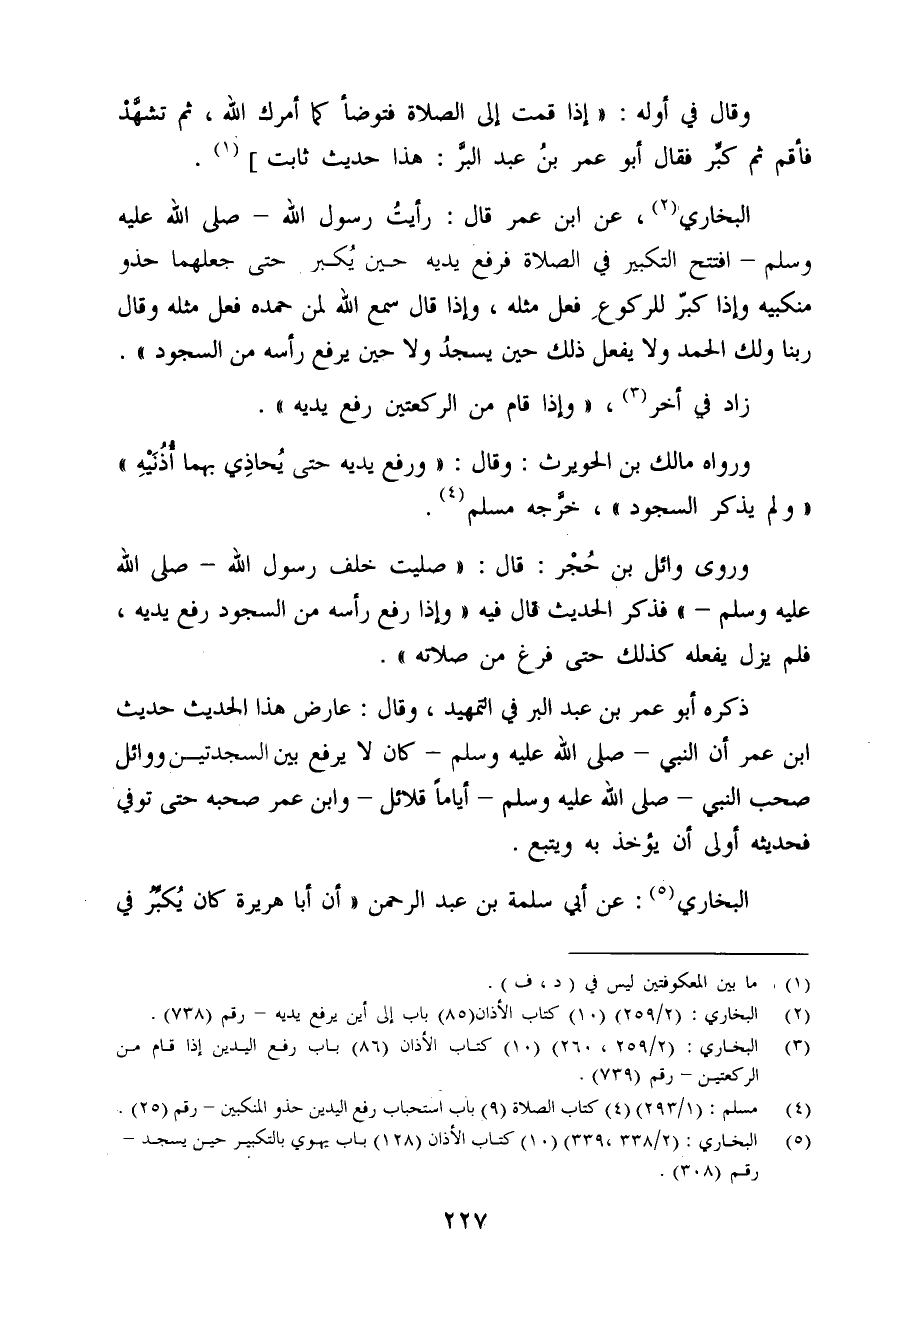 وقال في أوله : « إذا قمت إلى الصلاة فتوضأ كما أمرك الله ، ثم تشهَّدْ
فأقم ثم كبِّر فقال أبو عمر بنُ عبد البرَّ : هذا حديث ثابت ] (١) .
البخاري(٢) ، عن ابن عمر قال : رأيتُ رسول الله – صلى الله عليه
وسلم – افتتح التكبير في الصلاة فرفع يديه حين يُكبر حتى جعلهما حذو
منكبيه وإذا كبرّ للركوع فعل مثله ، وإذا قال سمع الله لمن حمده فعل مثله وقال
ربنا ولك الحمد ولا يفعل ذلك حين يسجدُ ولا حين يرفع رأسه من السجود » .
زاد في أخر(٣) ، « وإذا قام من الركعتين رفع يديه » .
ورواه مالك بن الحويرث : وقال : « ورفع يديه حتى يُحاذِي بهما أُذُنَيْهِ »
« ولم يذكر السجود » ، خرَّجه مسلم(٤) .
وروى وائل بن حُجْر : قال : « صليت خلف رسول الله – صلى الله
عليه وسلم – » فذكر الحديث قال فيه « وإذا رفع رأسه من السجود رفع يديه ،
فلم يزل يفعله كذلك حتى فرغ من صلاته » .
ذكره أبو عمر بن عبد البر في التمهيد ، وقال : عارض هذا الحديث حديث
ابن عمر أن النبي – صلى الله عليه وسلم – كان لا يرفع بين السجدتين ووائل
صحب النبي – صلى الله عليه وسلم – أياماً قلائل – وابن عمر صحبه حتى توفي
فحديثه أولى أن يؤخذ به ويتبع .
البخاري(٥) : عن أبي سلمة بن عبد الرحمن « أن أبا هريرة كان يُكبِّر في
(١) ما بين المعكوفتين ليس في ( د ، ف ) .
(٢) البخاري : (٢٥٩/٢) (١٠) كتاب الأذان(٨٥) باب إلى أين يرفع يديه – رقم (٧٣٨) .
(٣) البخاري : (٢٥٩/٢ ، ٢٦٠) (١٠) كتاب الأذان (٨٦) باب رفع اليدين إذا قام من
الركعتين – رقم (٧٣٩) .
(٤) مسلم : (٢٩٣/١) (٤) كتاب الصلاة (٩) باب استحباب رفع اليدين حذو المنكبين – رقم (٢٥) .
(٥) البخاري : (٣٣٨/٢ ،٣٣٩) (١٠) كتاب الأذان (١٢٨) باب يهوي بالتكبير حين يسجد –
رقم (٣٠٨) .
٢٢٧